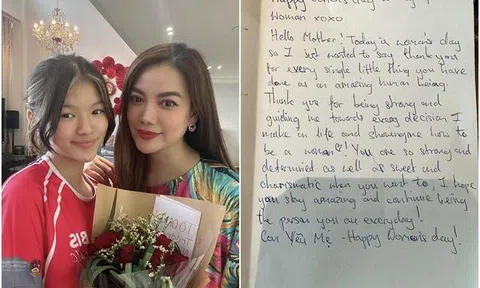 BIS
TO: OANH
Happy Women's day
Woman xoxo
Hello Mother! Today is women's day
so I just wanted to say thank you
for every single little thing you have
done as an amazing human being.
Thank you for being strong and
guiding me towards every decision I
make in life and showing me how to
be a woman! You are so strong and
determined as well as sweet and
charismatic when you want to, I hope
you stay amazing and continue being
the person you are everyday!
Con Yêu Mẹ - Happy Women's day!